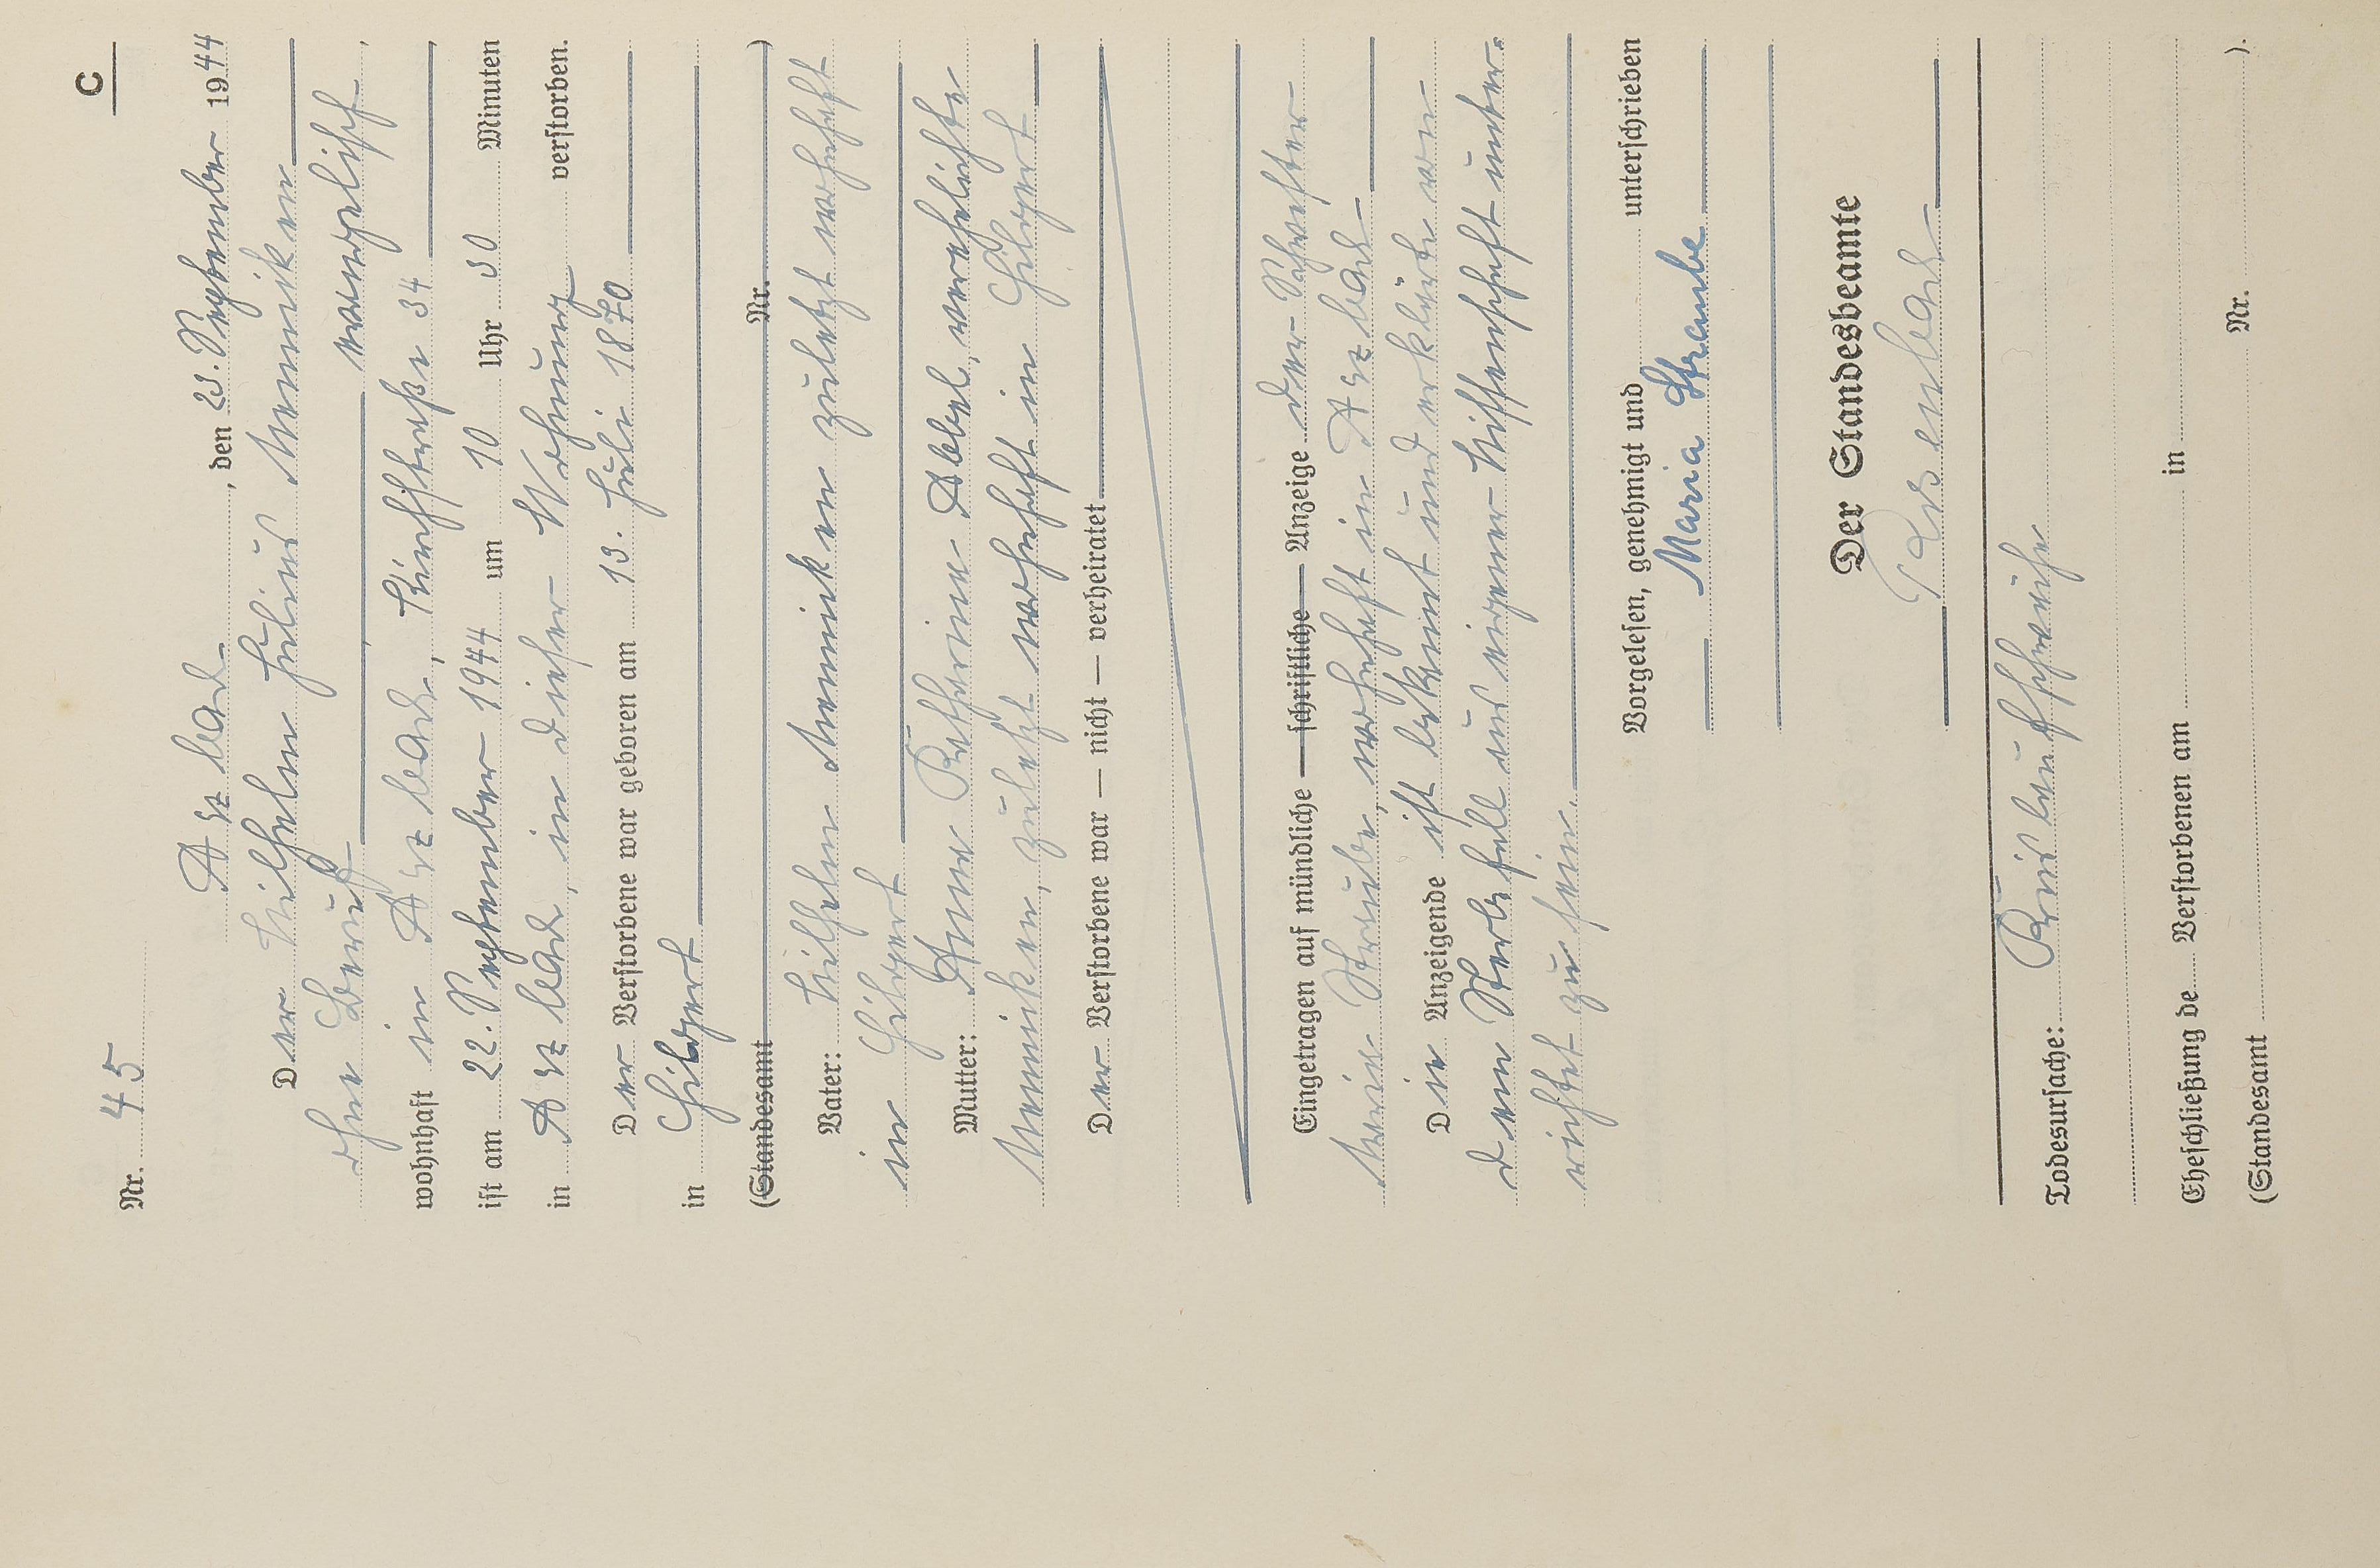 C
Nr. 45
Aßlar, den 23. September 1944
Der Wilhelm Julius Weiniken
ohne Beruf evangelisch,
wohnhaft in Aßlar, Kirchstraße 34
ist am 22. September 1944 um 10 Uhr 30 Minuten
in Aßlar, in dieser Wohnung verstorben.
Der Verstorbene war geboren am 13. Juli 1870
in
(Standesamt Nr. )
Vater: Wilhelm zuletzt wohnhaft
in
Mutter: Anna Katharina Abbel, verehelichte
zuletzt wohnhaft in
Der Verstorbene war — nicht — verheiratet
Eingetragen auf mündliche — schriftliche — Anzeige der Schwester
Maria Straube, wohnhaft in Aßlar
Die Anzeigende ist bekannt und erklärte von
dem Sterbefall aus eigener Wissenschaft unter-
richtet zu sein.
Vorgelesen, genehmigt und unterschrieben
Maria Straube
Der Standesbeamte
Todesursache:
Eheschließung de Verstorbenen am in
(Standesamt Nr. ).